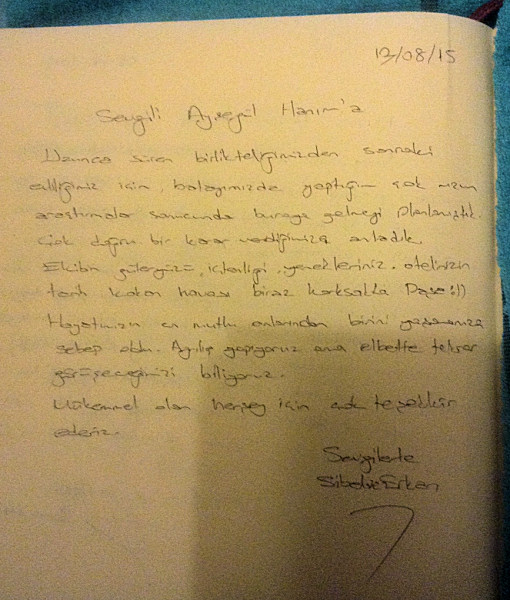 13/08/15
Sevgili Ayşegül Hanım'a
Uzunca süren birlikteliğimizden sonraki
evliliğimiz için, balayımızda yaptığım çok uzun
araştırmalar sonucunda buraya gelmeyi planlamıştık.
Çok doğru bir karar verdiğimizi anladık.
Ekibin güleryüzü, içtenliği, yemekleriniz, otelinizin
tarih kokan havası biraz korksakta
Hayatımızın en mutlu anlarından birini yaşamamıza
sebep oldu. Ayrılış yapıyoruz ama elbette tekrar
görüşeceğimizi biliyoruz.
Mükemmel olan herşey için çok teşekkür
ederiz.
Sevgilerle
Sibel ve Erkan